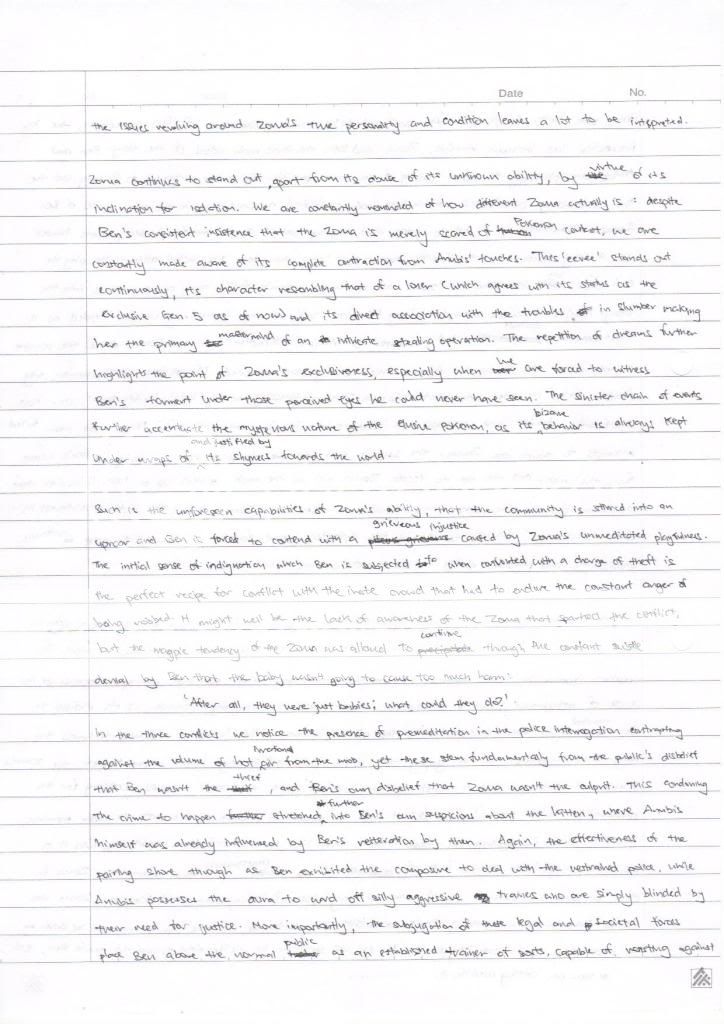 Date No.
the issues revolving around Zorua's true personality and condition leaves a lot to be interpreted.
Zorua continues to stand out, apart from its abuse of its unknown ability, by virtue of its
inclination for isolation. We are constantly reminded of how different Zorua actually is : despite
Ben's consistent insistence that the Zorua is merely scared of Pokemon contact, we are
constantly made aware of its complete contraction from Anubis' touches. This 'eevee' stands out
continuously, its character resembling that of a loner (which agrees with its status as the
exclusive Gen. 5 as of now) and its direct association with the troubles in slumber making
her the primary mastermind of an intricate stealing operation. The repetition of dreams further
highlights the point of Zorua's exclusiveness, especially when we are forced to witness
Ben's torment under those perceived eyes he could never have seen. The sinister chain of events
further accentuate the mysterious nature of the elusive Pokemon, as its bizarre behavior is always kept
under wraps of and justified by its shyness towards the world.
Such is the unforeseen capabilities of Zorua's ability, that the community is stirred into an
uproar and Ben is forced to contend with a grievous injustice caused by Zorua's unmeditated playfulness.
The initial sense of indignation which Ben is subjected to when confronted with a charge of theft is
the perfect recipe for conflict with the irate crowd that had to endure the constant anger of
being robbed. It might well be the lack of awareness of the Zorua that sparked the conflict,
but the magpie tendency of the Zorua was allowed to continue through the constant subtle
denial by Ben that the baby wasn't going to cause too much harm:
'After all, they were just babies; what could they do?'.
In the three conflicts we notice the presence of premeditation in the police interrogation contrasting
against the volume of irrational hot air from the mob, yet these stem fundamentally from the public's disbelief
that Ben wasn't the thief, and Ben's own disbelief that Zorua wasn't the culprit. This condoning
the crime to happen stretched further into Ben's own suspicions about the kitten, where Anubis
himself was already influenced by Ben's reiteration by then. Again, the effectiveness of the
pairing shone through as Ben exhibited the composure to deal with the restrained police, while
Anubis possesses the aura to ward off silly aggressive who are simply blinded by
their need for justice. More importantly, the subjugation of these legal and societal forces
place Ben above the normal public as an established trainer of sorts, capable of resisting against